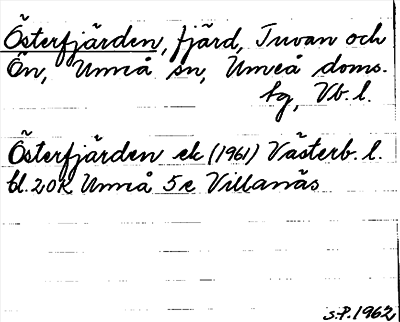 Österfjärden, fjärd, Tuvan och
Ön, Umeå sn, Umeå doms.
tg, Vb. l.
Österfjärden ek (1961) Västerb. l.
bl. 20K Umeå 5e Villanäs
S.P. 1962